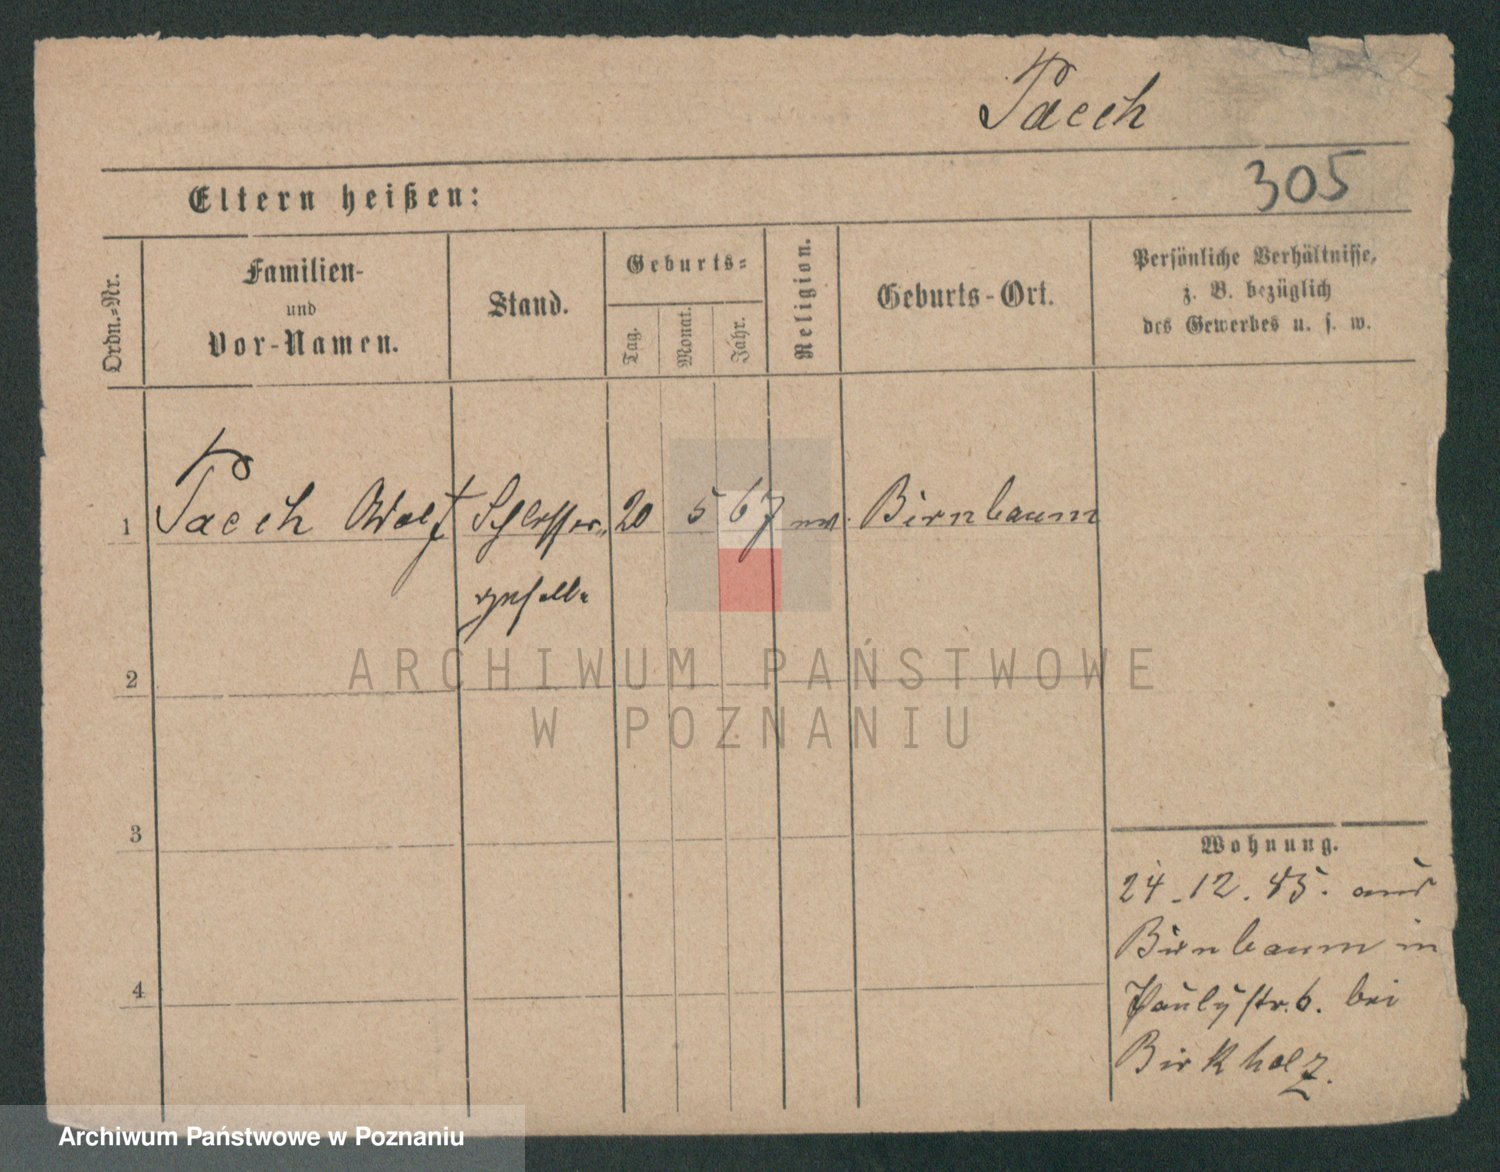 Paech
305
Eltern heißen:
Ordn.-Nr.
Familien-
und
Vor-Namen.
Stand.
Geburts-
Tag.
Monat.
Jahr.
Religion.
Geburts-Ort.
Persönliche Verhältnisse,
z. B. bezüglich
des Gewerbes u. s. w.
1 Paech Adolf Schlosser- 20 5 67 ev. Birnbaum
geselle
2
ARCHIWUM PAŃSTWOWE
W POZNANIU
3
Wohnung.
24.12.85. aus
Birnbaum in
Paulystr. 6. bei
Birkholz.
4
Archiwum Państwowe w Poznaniu